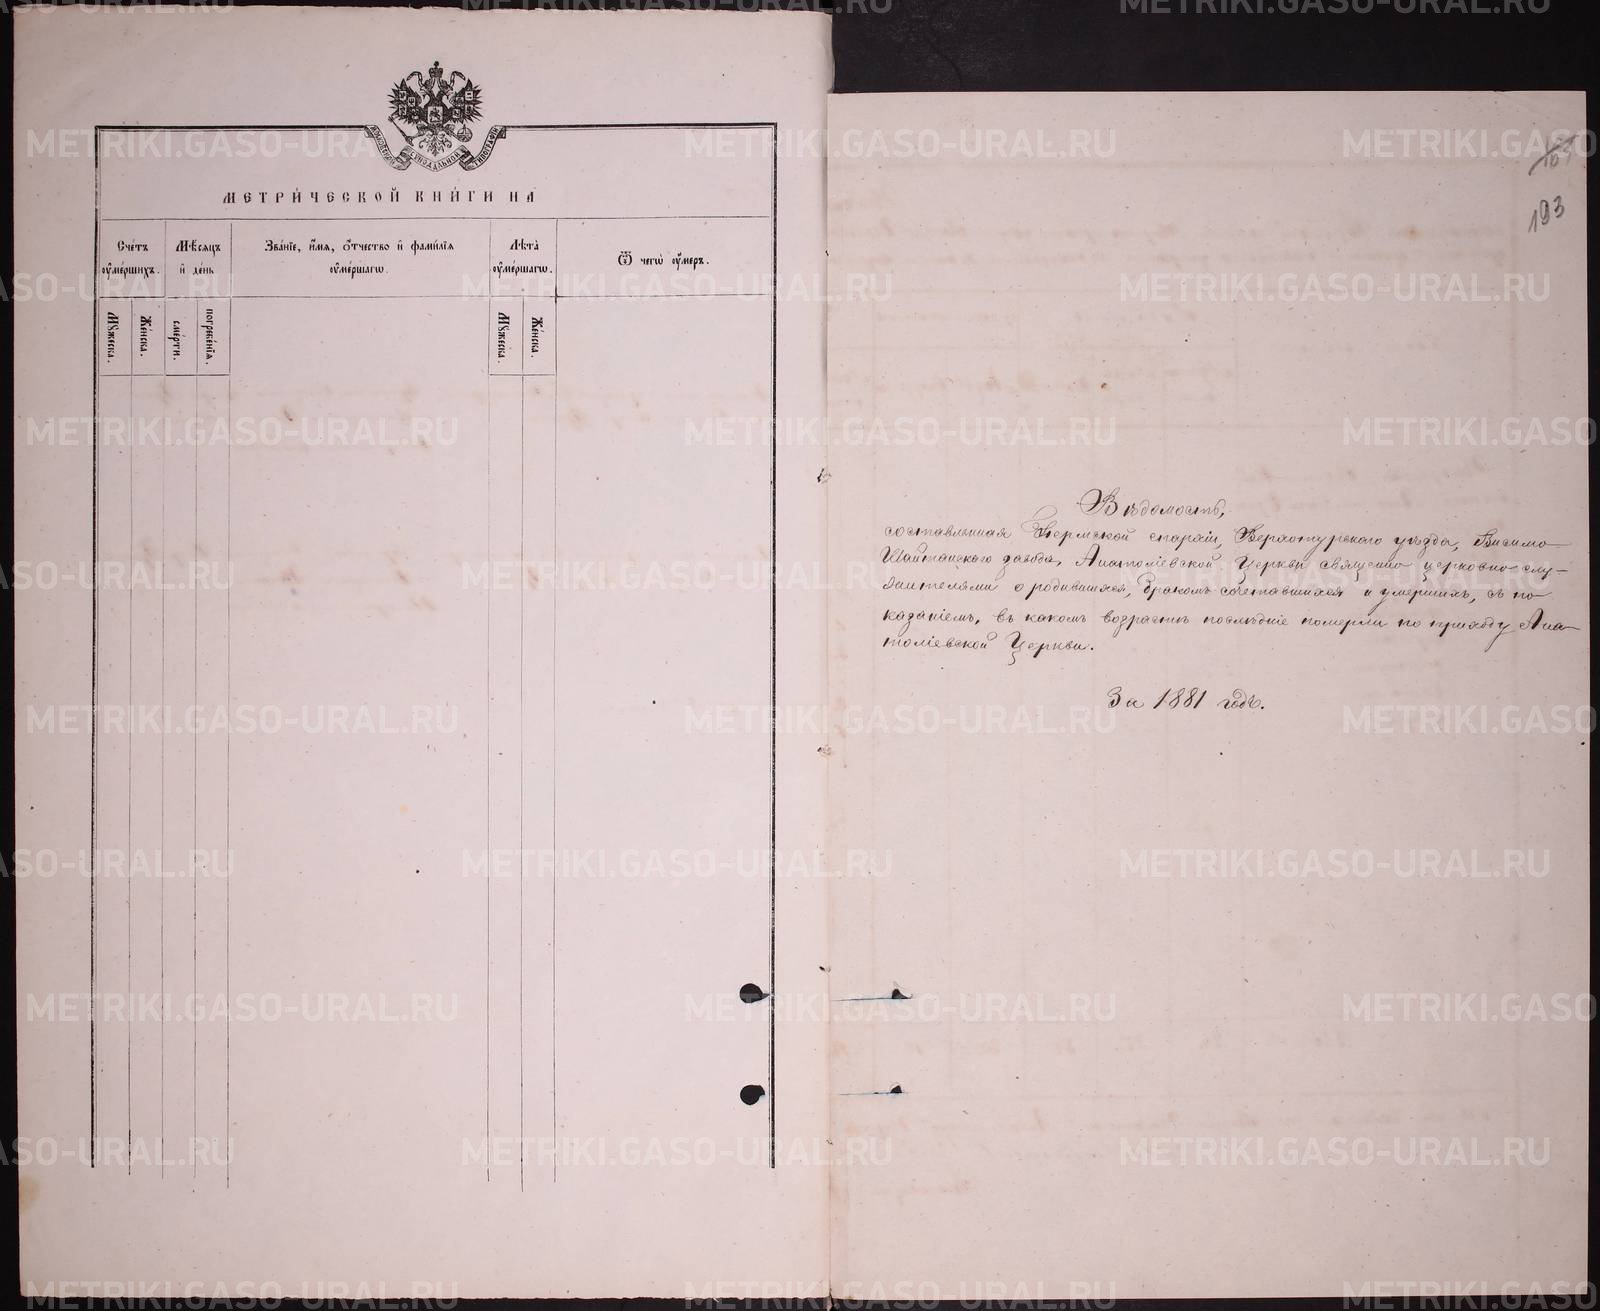 МЕТРИ́ЧЕСКОЙ КНИ́ГИ НА
Сче́тъ оу҆ме́ршихъ.
Мѣ́сяцъ и҆ де́нь
Зва́нїе, и҆́мя, ѻ҆́тчество и҆ фами́лїя оу҆ме́ршагѡ.
Лѣта̀ оу҆ме́ршагѡ.
Ѿ чегѡ̀ оу҆́меръ.
Мꙋ́жеска.
Же́нска.
сме́рти.
погребе́нїя.
Мꙋ́жеска.
Же́нска.
193
Вѣдомость,
составленная Пермской епархіи, Верхотурскаго уѣзда, Висимо-
Шайтанскаго завода, Анатоліевской Церкви священно церковно-слу-
жителями о родившихся, бракомъ сочетавшихся и умершихъ, съ по-
казаніемъ, въ какомъ возрастѣ послѣдніе померли по приходу Ана-
толіевской Церкви.
За 1881 годъ.
METRIKI.GASO-URAL.RU